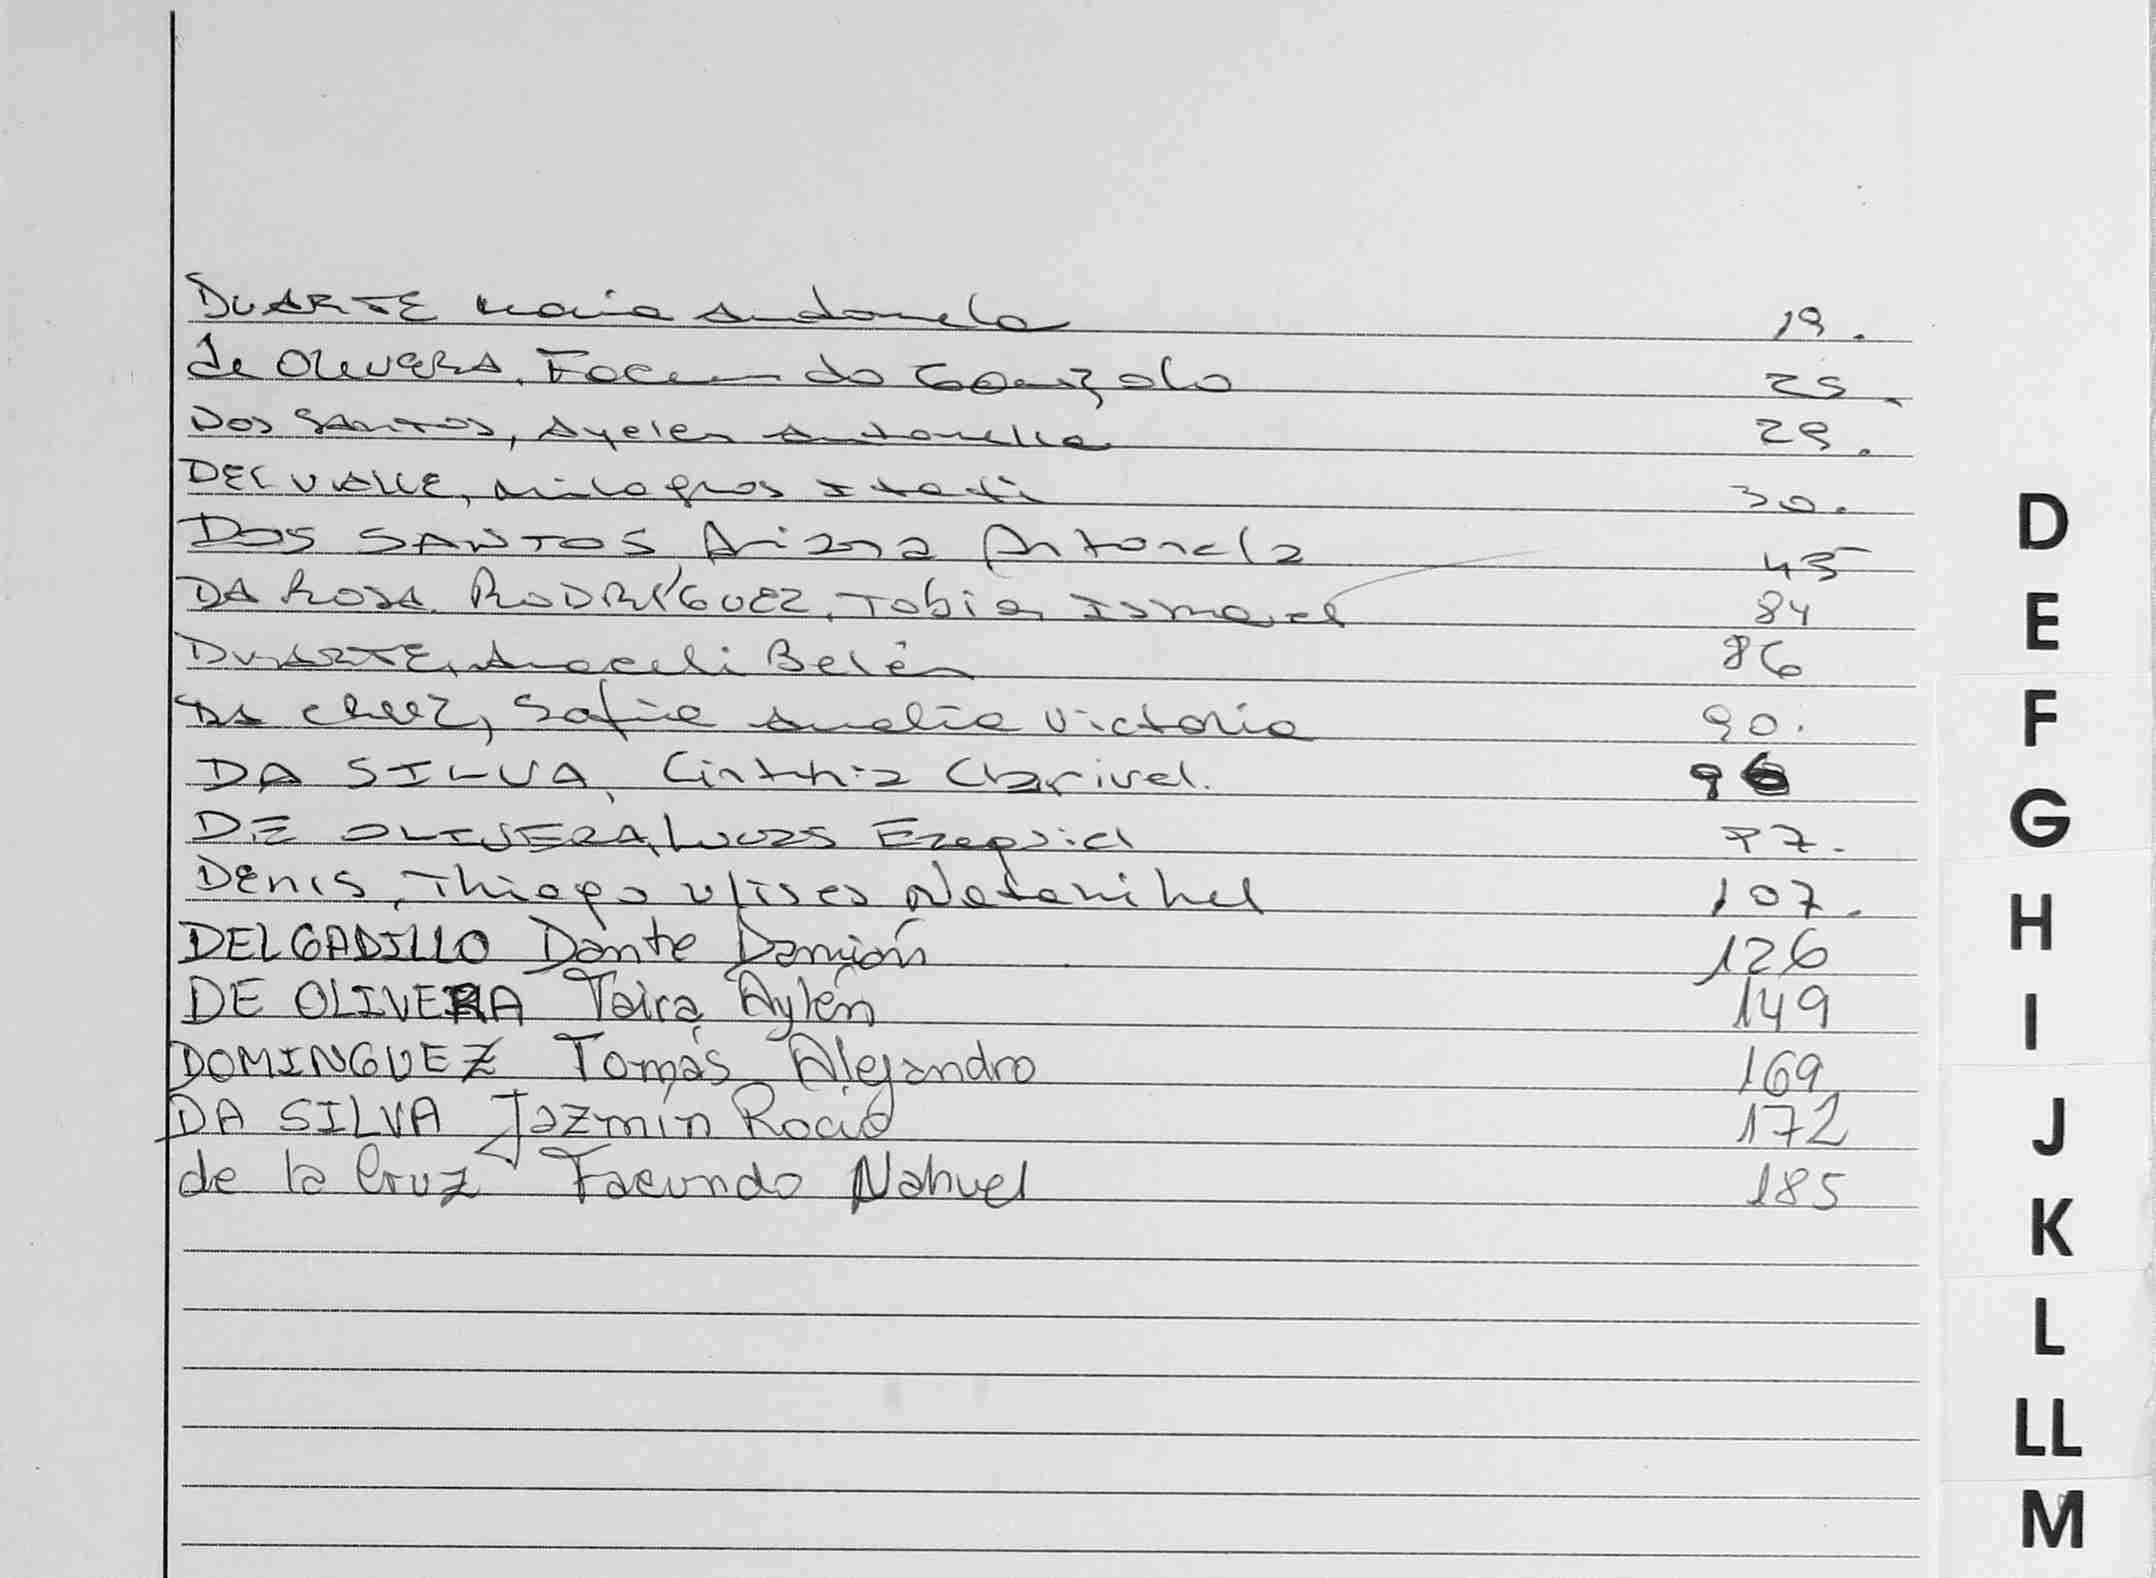 DUARTE Maria Antonela 19.
de OLIVERA, Facundo Gonzalo 25.
Dos SANTOS, Ayelen Antonella 29.
DEL VALLE, Milagros Itati 30.
DOS SANTOS, Ariana Antonela 45
DA ROSA RODRÍGUEZ, Tobias Ismael 84
DUARTE, Araceli Belén 86
DA CRUZ, Sofia Amelia Victoria 90.
DA SILVA, Cinthia Clarivel. 96
DE OLIVERA, Lucas Ezequiel 97.
DENIS, Thiago Ulises Natanihel 107.
DELGADILLO Dante Damián 126
DE OLIVERA Taira Aylén 149
DOMINGUEZ Tomás Alejandro 169
DA SILVA Jazmín Rocio 172
de la Cruz Facundo Nahuel 185
D
E
F
G
H
I
J
K
L
LL
M